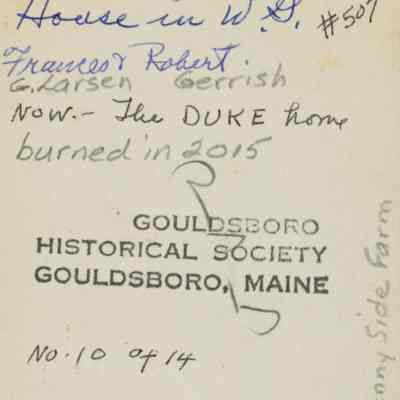 House in W.G.
#507
Frances & Robert
G. Larsen Gerrish
NOW.- The DUKE home
burned in 2015
GOULDSBORO
HISTORICAL SOCIETY
GOULDSBORO, MAINE
No. 10 of 14
nny Side Farm